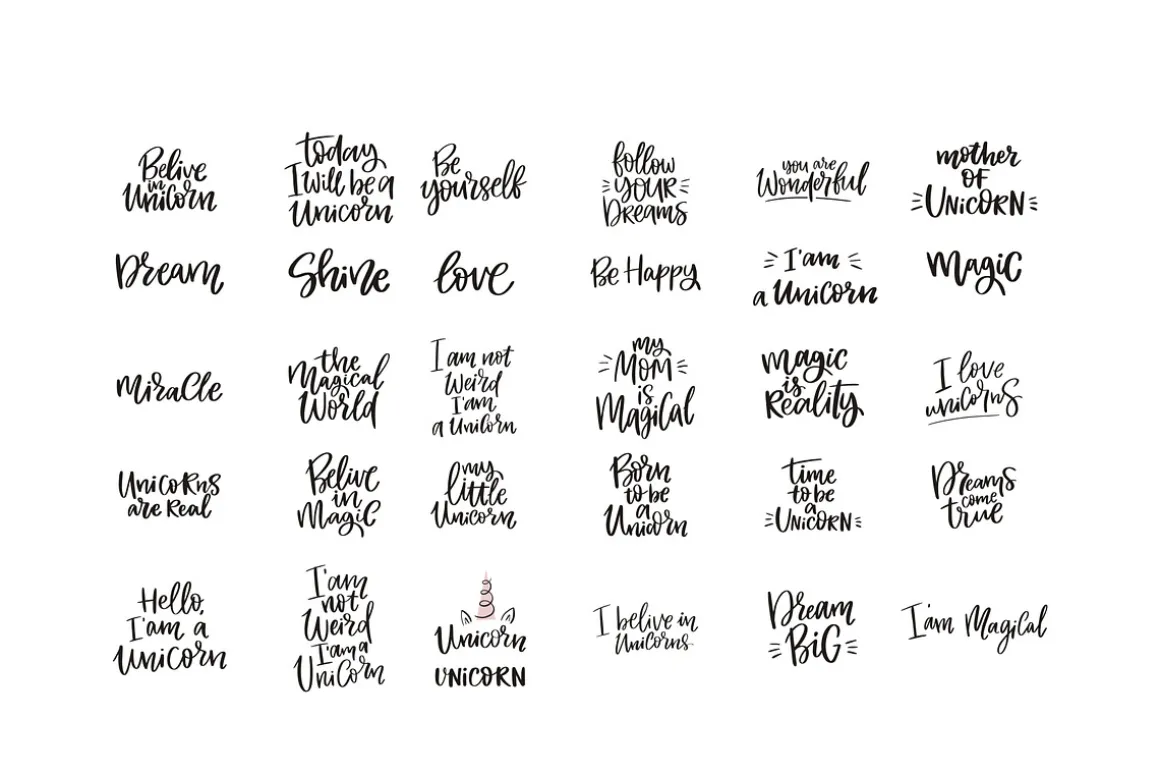 Belive
in
Unicorn
today
I will be a
Unicorn
Be
yourself
follow
YOUR
Dreams
you are
Wonderful
mother
OF
UNiCORN
Dream
Shine
love
Be Happy
I'am
a Unicorn
Magic
Miracle
the
Magical
World
I am not
Weird
I'am
a Unicorn
my
MOM
is
Magical
Magic
is
Reality
I love
unicorns
Unicorns
are Real
Belive
in
Magic
my
little
Unicorn
Born
to be
a
Unicorn
time
to be
a
UNiCORN
Dreams
come
true
Hello,
I'am a
Unicorn
I'am
not
Weird
I'am a
Unicorn
Unicorn
UNiCORN
I belive in
Unicorns
Dream
BiG
I'am Magical